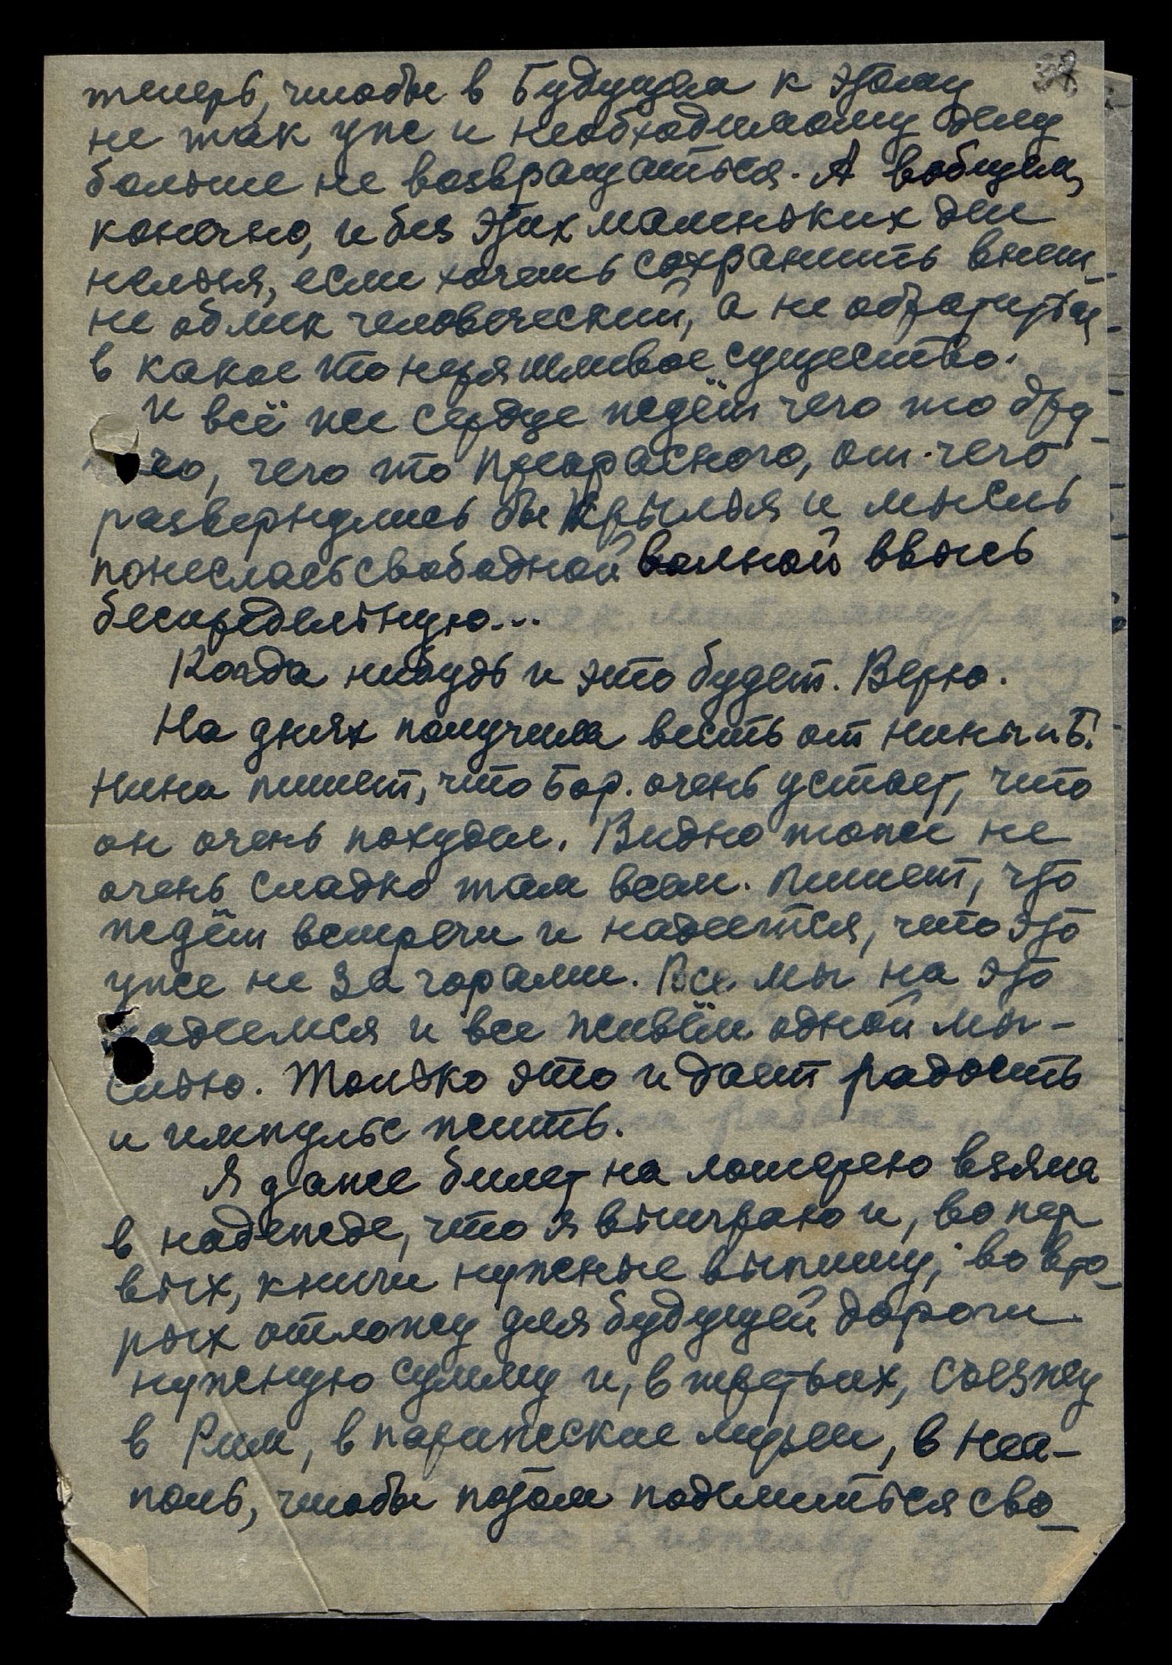 38
теперь, чтобы в будущем к этому
не так уже и необходимому делу
больше не возвращаться. А вобщем,
конечно, и без этих маленьких дел
нельзя, если хочешь сохранить внеш-
не облик человеческий, а не обратиться
в какое то неряшливое существо.
И всё же сердце ждёт чего то дру-
го, чего то прекрасного, от чего
развернулись бы крылья и мысль
понеслась свободной волной ввысь
беспредельную...
Когда нибудь и это будет. Верю.
На днях получила весть от Нины и Б.
Нина пишет, что Бор. очень устает, что
он очень похудел. Видно тоже не
очень сладко там всем. Пишет, что
ждёт встречи и надеется, что это
уже не за горами. Все мы на это
надеемся и все живём одной мы-
слью. Только это и дает радость
и импульс жить.
Я даже билет на лотерею взяла
в надежде, что я выиграю и, во пер
вых, книги нужные выпишу; во вто-
рых отложу для будущей дороги
нужную сумму и, в третьих, съезжу
в Рим, в парижские музеи, в Неа-
поль, чтобы потом поделиться сво-